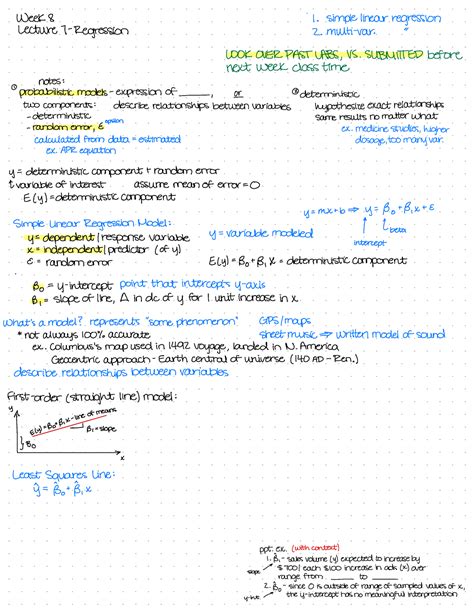 Week 8
Lecture 7-Regression
1. simple linear regression
2. multi-var. "
LOOK OVER PAST LABS, VS. SUBMITTED before
next week class time
notes:
① probabilistic models - expression of ____, or ② deterministic
two components: describe relationships between variables hypothesize exact relationships
- deterministic same results no matter what
- random error, ε epsilon ex. medicine studies, higher
calculated from data = estimated dosage, too many var.
ex. APR equation
y = deterministic component + random error
↑ variable of interest assume mean of error = 0
E(y) = deterministic component
y = mx + b ⇒ y = β₀ + β₁x + ε
intercept beta
Simple Linear Regression Model:
y = dependent/response variable y = variable modeled
x = independent/predictor (of y)
ε = random error E(y) = β₀ + β₁x = deterministic component
β₀ = y-intercept point that intercepts y-axis
β₁ = slope of line, Δ in dc of y for 1 unit increase in x
What's a model? represents "some phenomenon" GPS/maps
* not always 100% accurate sheet music → written model of sound
ex. Columbus's map used in 1492 voyage, landed in N. America
Geocentric approach - Earth central of universe (140 AD - Ren.)
describe relationships between variables
First-order (straight line) model:
y
E(y) = β₀ + β₁x - line of means
β₁ = slope
β₀
x
Least Squares Line:
ŷ = β̂₀ + β̂₁x
ppt. ex. (with context)
1. β̂₁ - sales volume (y) expected to increase by
slope $700/each $100 increase in adv. (x) over
range from ____ to ____
2. β̂₀ - since 0 is outside of range of sampled values of x,
y-int. the y-intercept has no meaningful interpretation